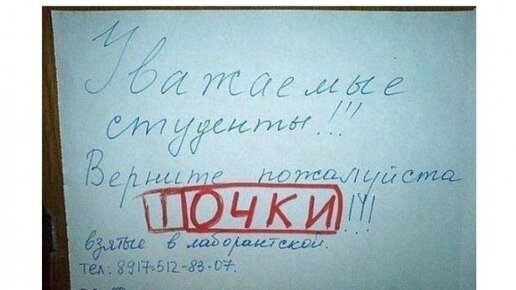 Уважаемые
студенты!!!
Верните пожалуйста
ПОЧКИ!!!
взятые в лаборантской.
тел: 8917-512-83-07.